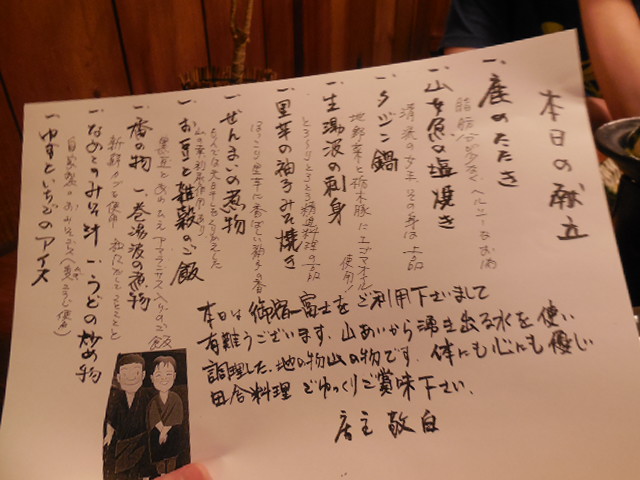 本日の献立
一、鹿のたたき
脂肪分が少なくヘルシーなお肉
一、山女魚の塩焼き
清流の女王 その身は上品
一、タジン鍋
地野菜と栃木豚にエゴマオイル使用!
一、生湯波の刺身
とろ〜りとろとろ精進料理の一品
一、里芋の柚子みそ焼き
ほっこり里芋に香ばしい柚子の香
一、ぜんまいの煮物
一、お豆と雑穀のご飯
黒豆とあわひえアマランサス入りのご飯
一、香の物 一、巻湯波の煮物
一、なめこのみそ汁 一、うどの炒め物
一、ゆずといちごのアイス
本日は御宿一富士をご利用下さいまして
有難うございます。山あいから湧き出る水を使い
調理した、地の物山の物です。体にも心にも優しい
田舎料理 ごゆっくりご賞味下さい。
店主 敬白